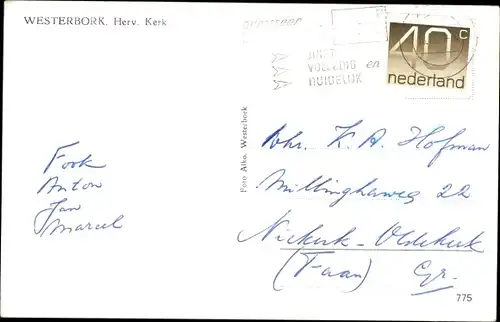 WESTERBORK. Herv. Kerk
adresseer
JUIST
VOLLEDIG en
DUIDELIJK
40 c
nederland
Foto Alko. Westerbork
Fook
Anton
Jan
Marcel
Dhr. K. A. Hofman
Millinghaweg 22
Niekerk-Oldekerk
(Faan) Gr.
775